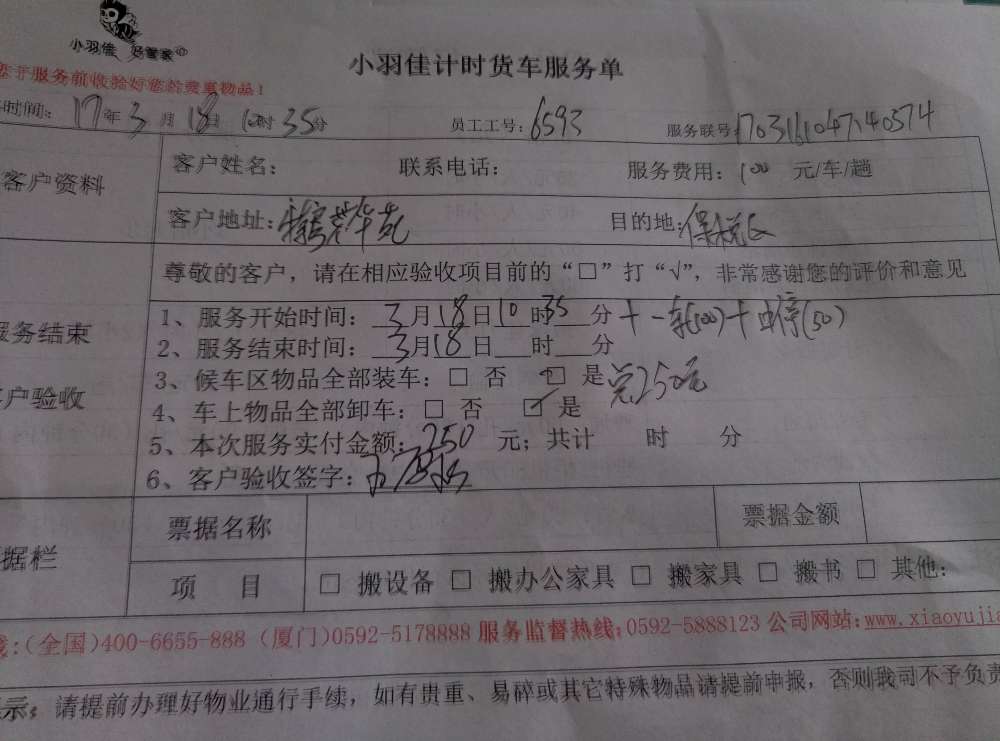 小羽佳 好管家
小羽佳计时货车服务单
于服务前收捡好您的贵重物品！
时间：17年3月18日10时35分 员工工号：6593 服务联号：1703161047140374
客户资料
客户姓名： 联系电话： 服务费用：100 元/车/趟
客户地址： 华苑 目的地：保税区
尊敬的客户，请在相应验收项目前的“□”打“√”，非常感谢您的评价和意见
服务结束
客户验收
1、服务开始时间：3月18日10时35分 + 一车(100)+ (50)
2、服务结束时间：3月18日 时 分
3、候车区物品全部装车：□ 否 □ 是 总250元
4、车上物品全部卸车：□ 否 ☑ 是
5、本次服务实付金额：250 元；共计 时 分
6、客户验收签字：
据栏
票据名称 票据金额
项 目 □ 搬设备 □ 搬办公家具 □ 搬家具 □ 搬书 □ 其他：
线：(全国)400-6655-888 (厦门)0592-5178888 服务监督热线：0592-5888123 公司网站：www.xiaoyujia
示：请提前办理好物业通行手续，如有贵重、易碎或其它特殊物品请提前申报，否则我司不予负责